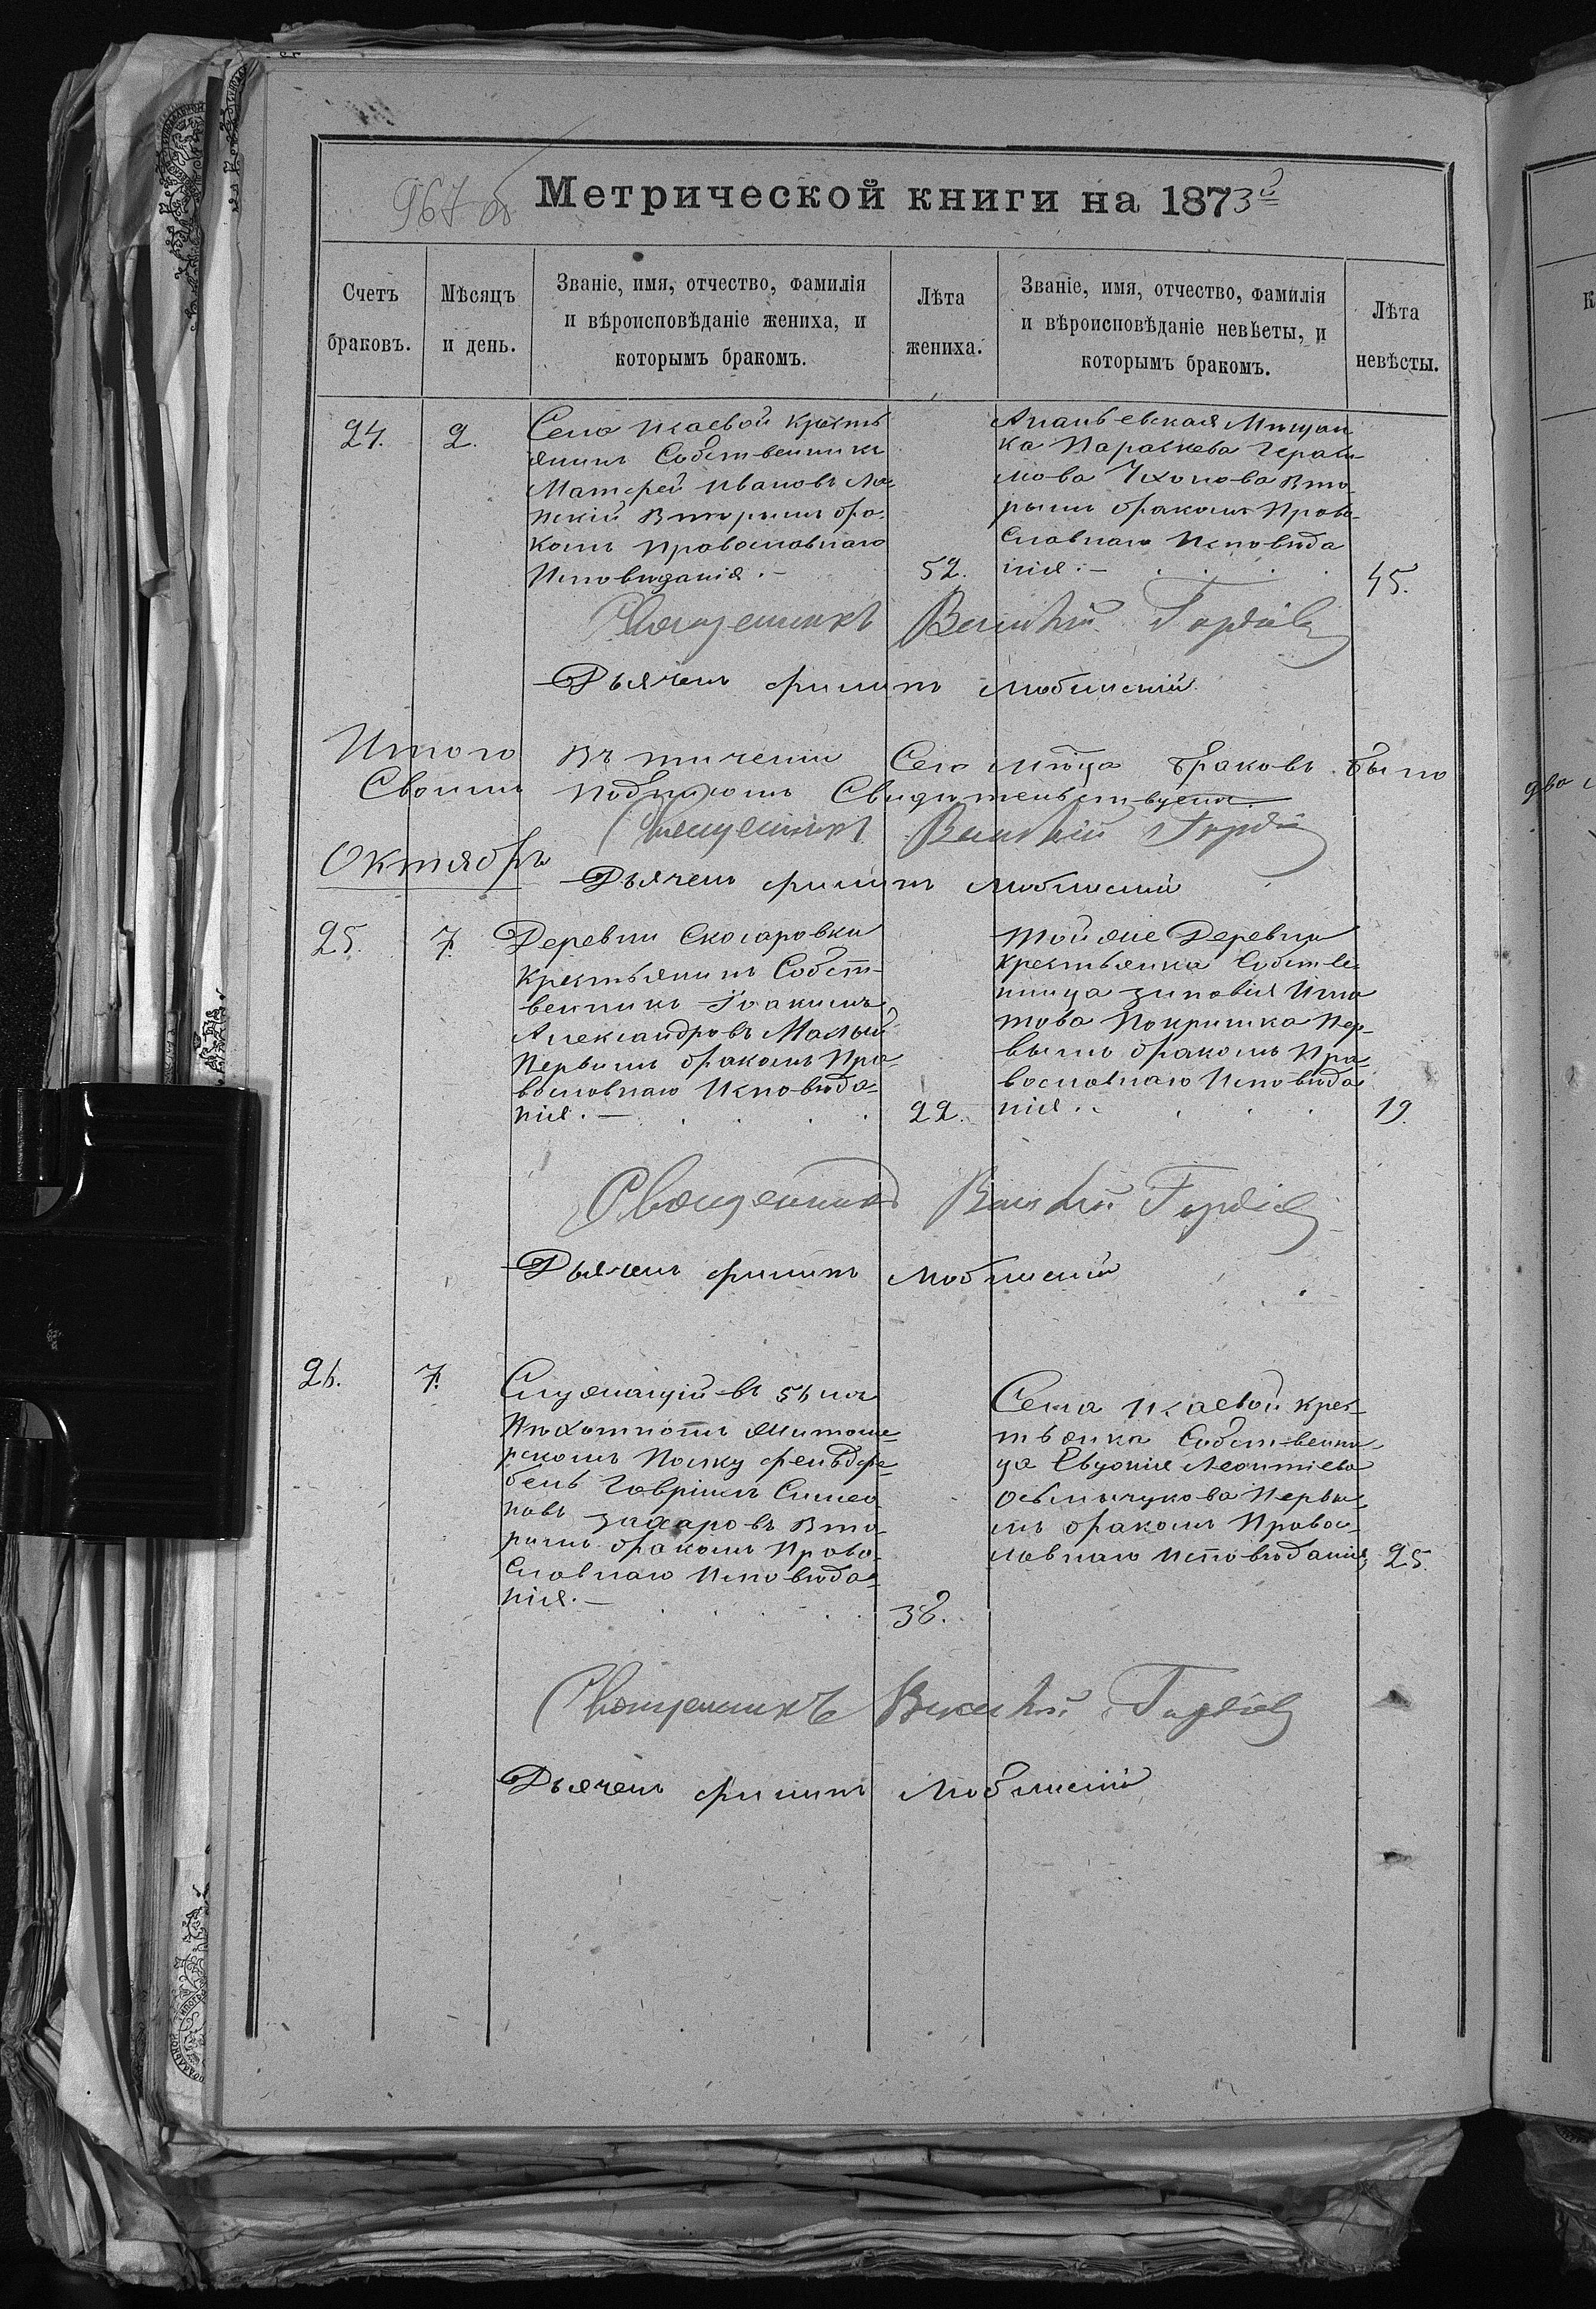 967 об
Метрической книги на 1873й
Счетъ браковъ.
Мѣсяцъ и день.
Званіе, имя, отчество, фамилія
и вѣроисповѣданіе жениха, и
которымъ бракомъ.
Лѣта жениха.
Званіе, имя, отчество, фамилія
и вѣроисповѣданіе невѣсты, и
которымъ бракомъ.
Лѣта невѣсты.
24.
2.
Села Исаевой крестъ
янинъ Собственникъ
Матфей Ивановъ
Вторымъ бра-
комъ Православнаго
Исповѣданія.-
52.
Ананьевская Мѣщан
ка Параскева Гераси
мова Вто-
рымъ бракомъ Право-
славнаго Исповѣда
нія.-
45.
Священникъ Василій Гордіев
Дьячекъ Филиппъ Люблинскій
Итого въ теченіи Сего мѣсца браковъ было
Своимъ подписомъ Свидѣтельствуемъ
Священникъ Василій Гордіев
Октябрь
Дьячекъ Филиппъ Люблинскій
25.
7.
Деревни Скосаровки
Крестьянинъ Собст-
венникъ Іоакимъ
Александровъ Малый
Первымъ бракомъ Пра-
вославнаго Исповѣда-
нія.-
22.
Той же Деревни
Крестьянка Собстве-
нница Зиновія Игна
това Покришка Пер-
вымъ бракомъ Пра-
вославнаго Исповѣда-
нія.
19.
Священникъ Василій Гордіев
Дьячекъ Филиппъ Люблинскій
26.
7.
Служащій въ 56мъ
Пѣхотномъ Житоми-
рскомъ Полку фельдфе-
бель Гавріилъ Симео-
новъ Захаровъ Вто-
рымъ бракомъ Право-
славнаго Исповѣда-
нія.-
38.
Села Исаевой Крес-
тьянка Собственни-
ца Евдокія Леонтіева
Осьмачукова Первы-
мъ бракомъ Правос-
лавнаго Исповѣданія
25.
Священникъ Василій Гордіев
Дьячекъ Филиппъ Люблинскій